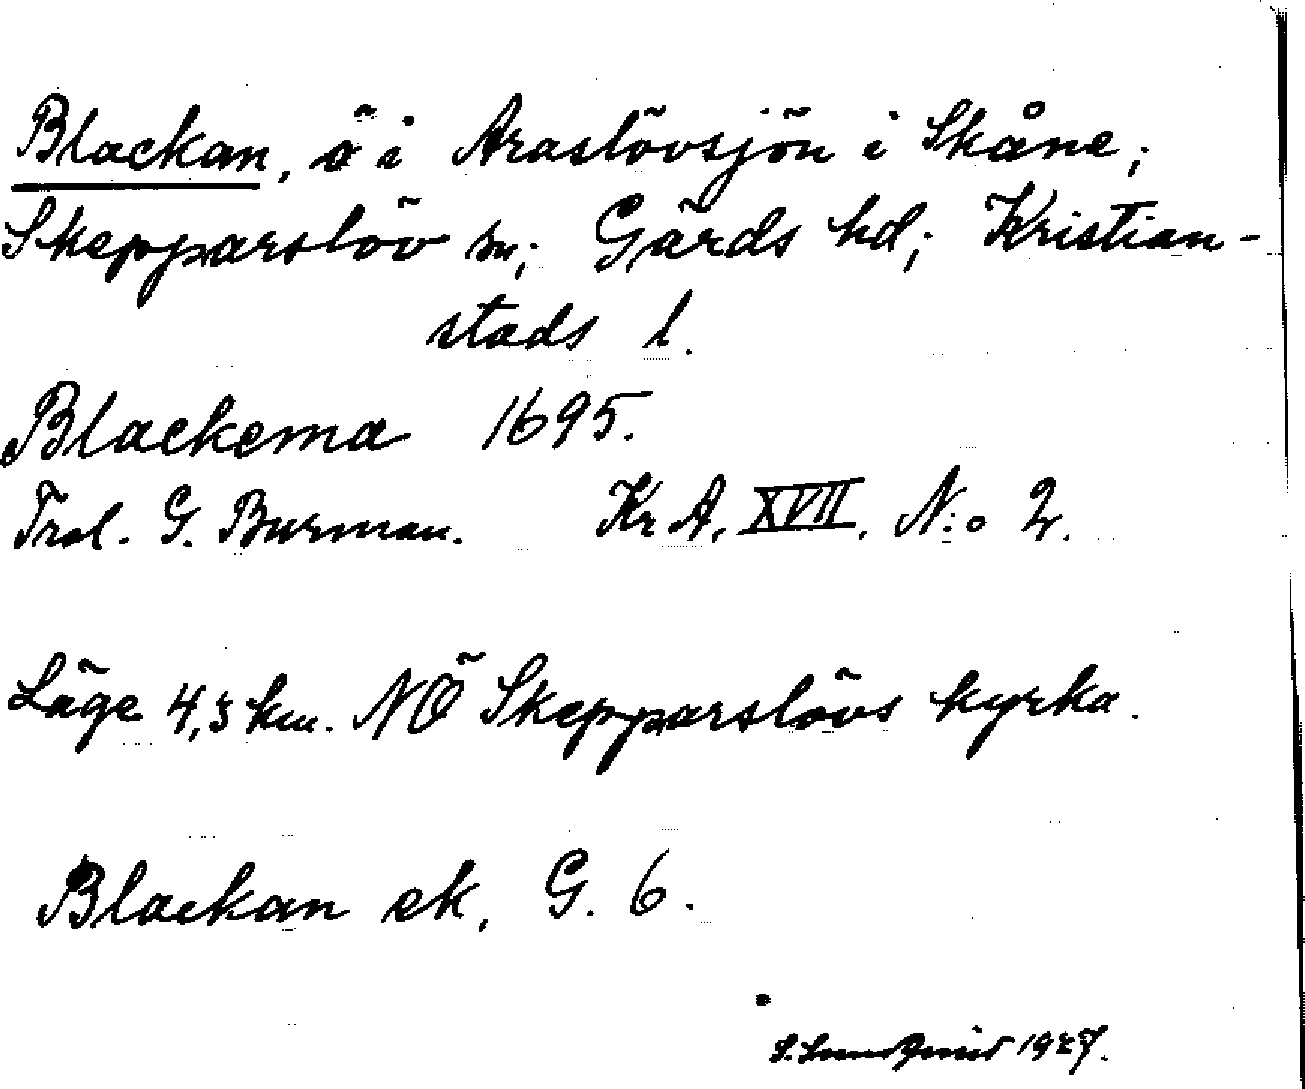 Blackan, ö i Araslövsjön i Skåne;
Skepparslöv sn; Gärds hd; Kristian-
stads l.
Blackema 1695.
Trol. G. Burman. Kr A. XVII. N:o 2.
Läge 4,5 km. NÖ Skepparslövs kyrka.
Blackan ek. G. 6.
1927.